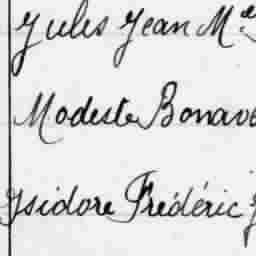 Jules Jean M.
Modeste Bonave
Isidore Frédéric